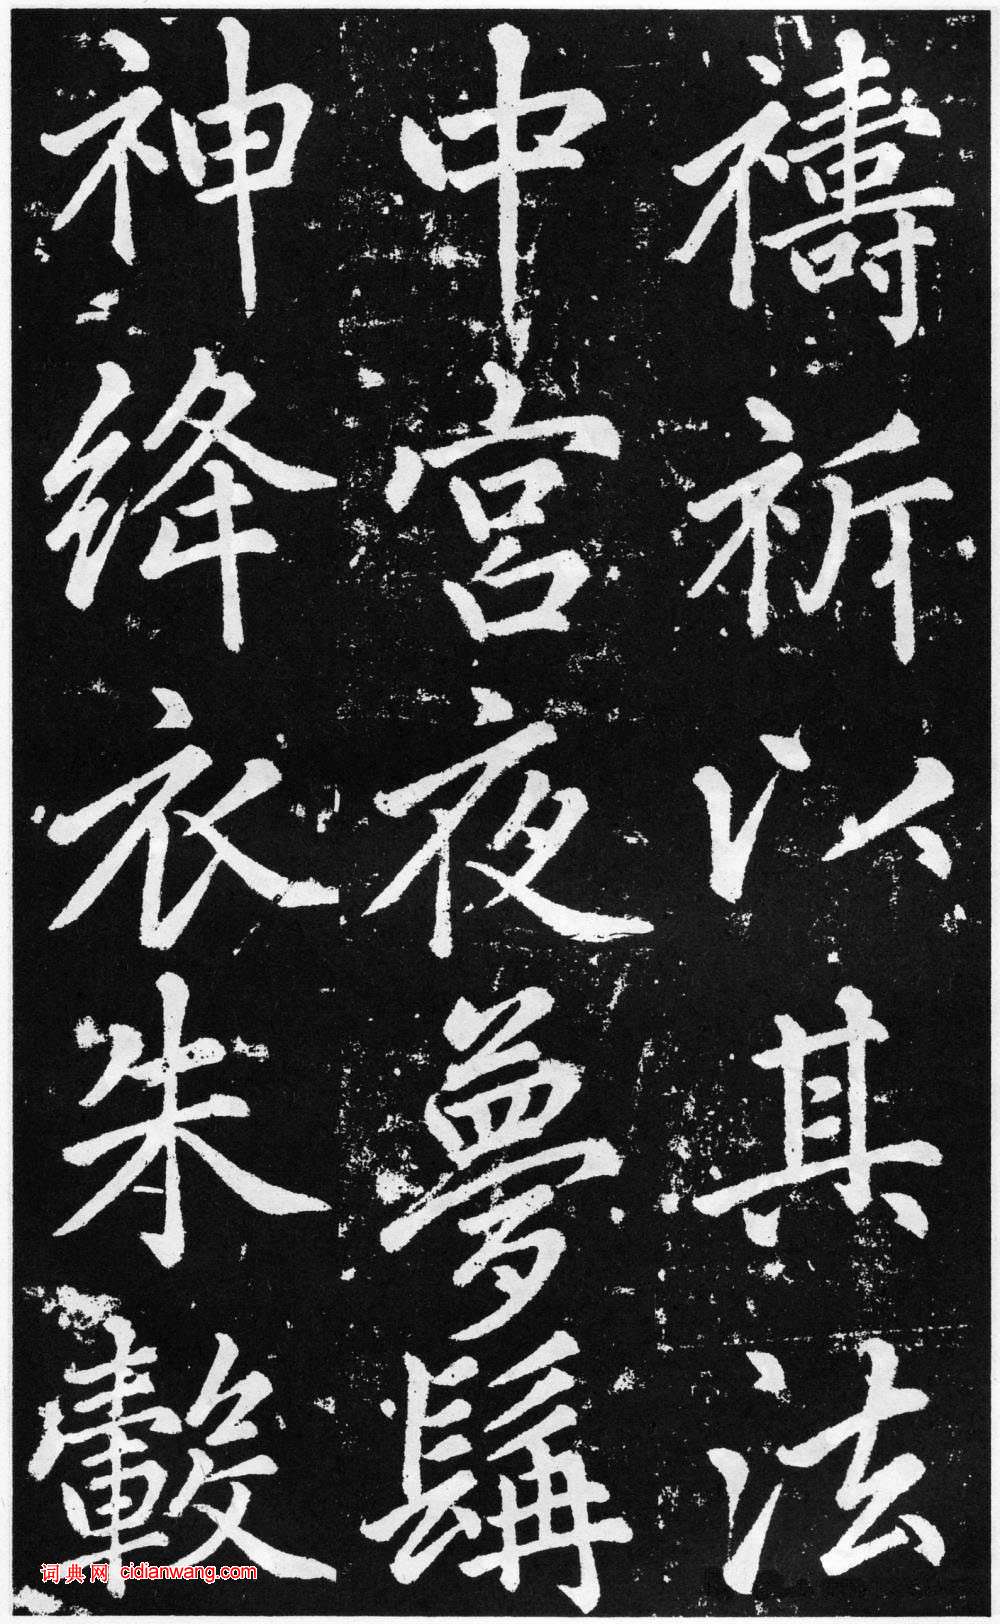 禱祈以其法
中宮夜夢髯
神絳衣朱轂
词典网 cidianwang.com